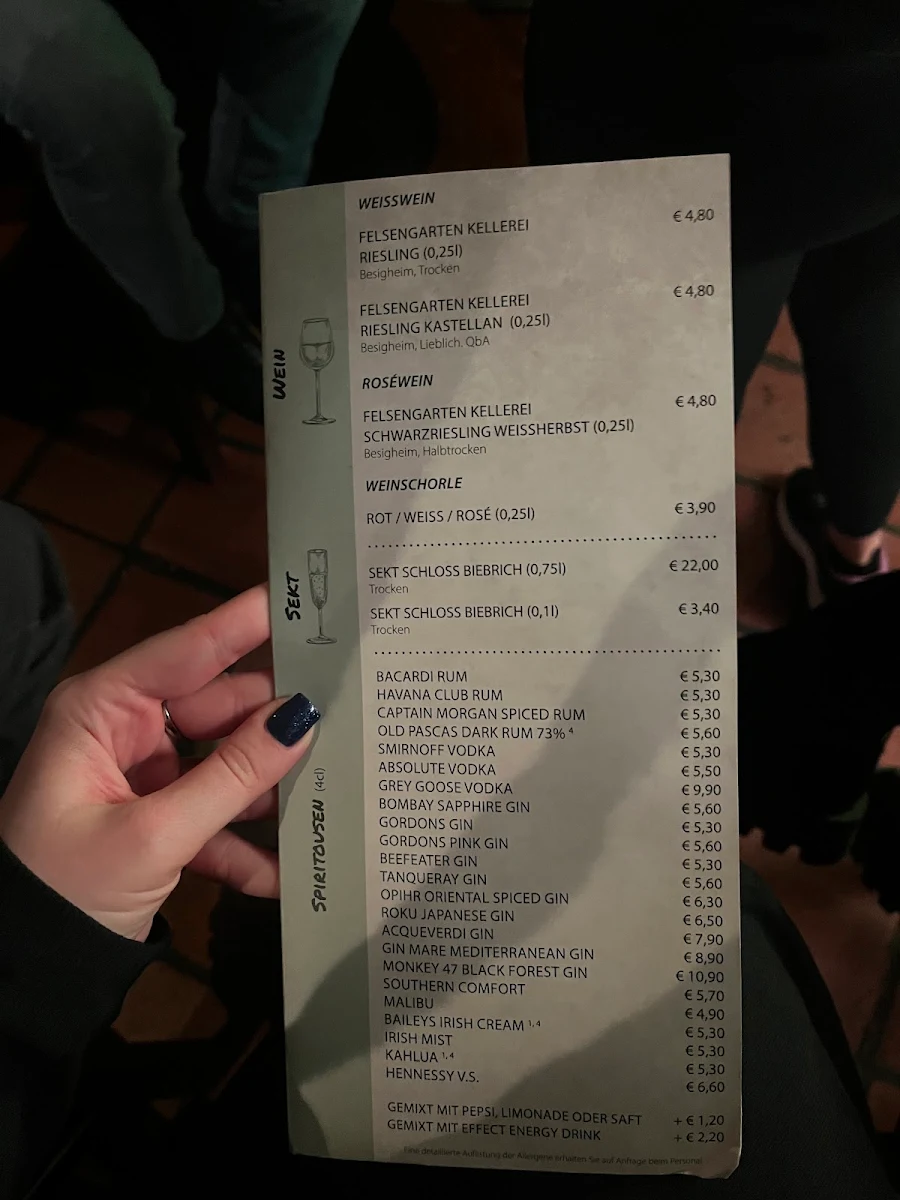 WEISSWEIN
FELSENGARTEN KELLEREI € 4,80
RIESLING (0,25l)
Besigheim, Trocken
FELSENGARTEN KELLEREI € 4,80
RIESLING KASTELLAN (0,25l)
Besigheim, Lieblich. QbA
WEIN
ROSÉWEIN
FELSENGARTEN KELLEREI € 4,80
SCHWARZRIESLING WEISSHERBST (0,25l)
Besigheim, Halbtrocken
WEINSCHORLE
ROT / WEISS / ROSÉ (0,25l) € 3,90
SEKT
SEKT SCHLOSS BIEBRICH (0,75l) € 22,00
Trocken
SEKT SCHLOSS BIEBRICH (0,1l) € 3,40
Trocken
SPIRITOUSEN (4cl)
BACARDI RUM € 5,30
HAVANA CLUB RUM € 5,30
CAPTAIN MORGAN SPICED RUM € 5,30
OLD PASCAS DARK RUM 73% ⁴ € 5,60
SMIRNOFF VODKA € 5,30
ABSOLUTE VODKA € 5,50
GREY GOOSE VODKA € 9,90
BOMBAY SAPPHIRE GIN € 5,60
GORDONS GIN € 5,30
GORDONS PINK GIN € 5,60
BEEFEATER GIN € 5,30
TANQUERAY GIN € 5,60
OPIHR ORIENTAL SPICED GIN € 6,30
ROKU JAPANESE GIN € 6,50
ACQUEVERDI GIN € 7,90
GIN MARE MEDITERRANEAN GIN € 8,90
MONKEY 47 BLACK FOREST GIN € 10,90
SOUTHERN COMFORT € 5,70
MALIBU € 4,90
BAILEYS IRISH CREAM ¹,⁴ € 5,30
IRISH MIST € 5,30
KAHLUA ¹,⁴ € 5,30
HENNESSY V.S. € 6,60
GEMIXT MIT PEPSI, LIMONADE ODER SAFT + € 1,20
GEMIXT MIT EFFECT ENERGY DRINK + € 2,20
Eine detaillierte Auflistung der Allergene erhalten Sie auf Anfrage beim Personal.